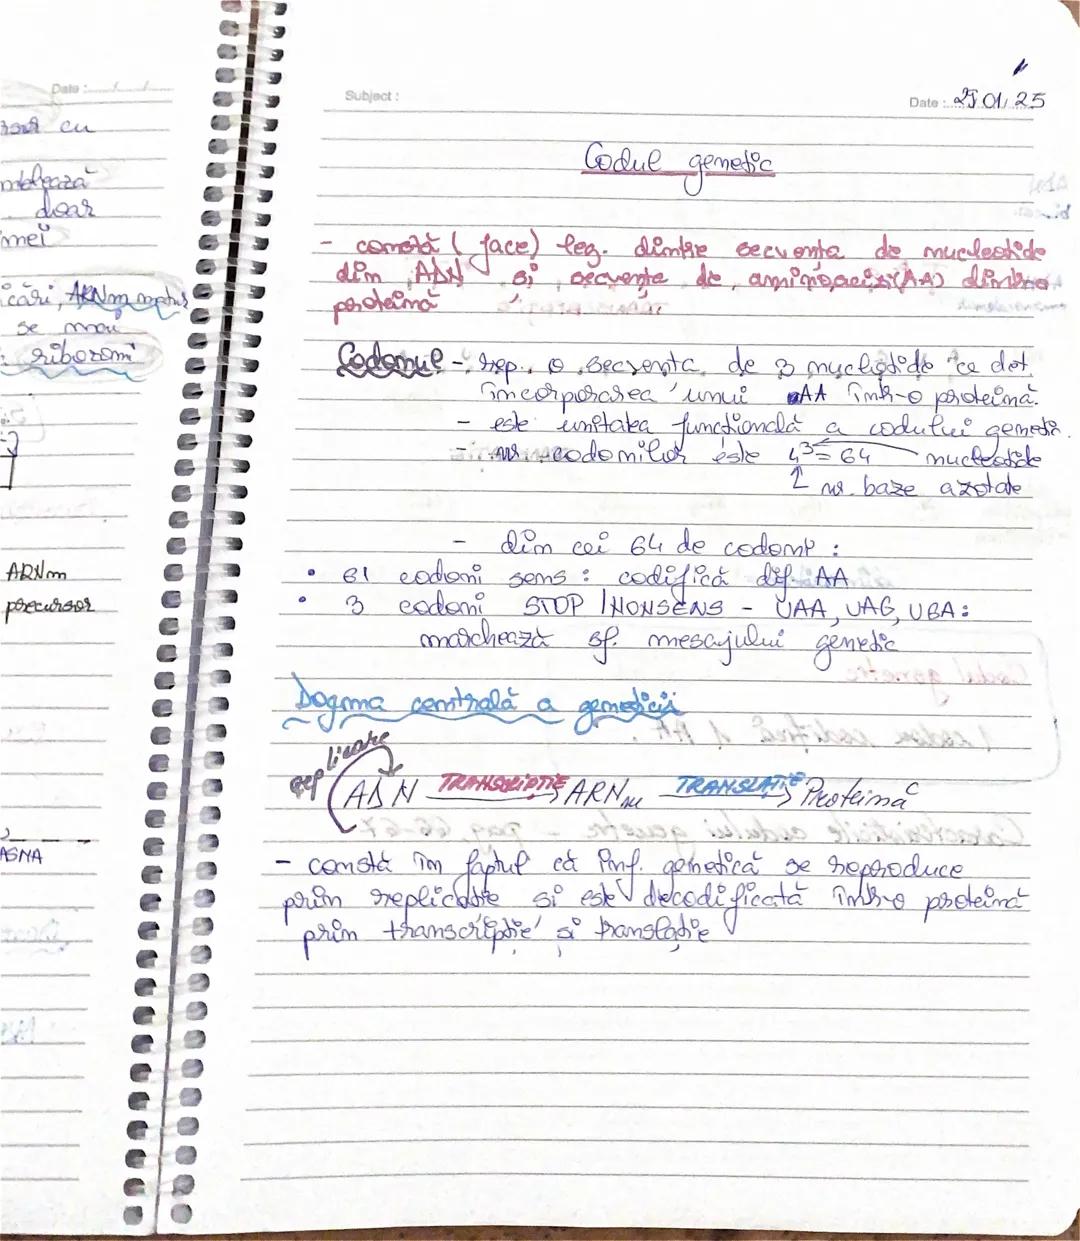 Date :
cu
doar
ARNm
se mai
ribozomi
ARNm
precursor
Subject :
Date : 25.01.25
Codul genetic
- constă (face) leg. dintre secvența de nucleotide
din ADN și secvența de aminoacizi (AA) dintr-o
proteină
Codonul - rep. o secvența de 3 nucleotide ce det.
încorporarea unui AA într-o proteină.
- este unitatea funcțională a codului genetic.
- nr. codonilor este 4³ = 64 nucleotide
nr. baze azotate
- din cei 64 de codoni :
• 61 codoni sens : codifică dif AA
• 3 codoni STOP / NONSENS - UAA, UAG, UGA :
marchează sf. mesajului genetic
Dogma centrală a geneticii
replicare
ADN TRANSCRIPȚIE ARNm TRANSLAȚIE Proteină
- constă în faptul că inf. genetică se reproduce
prin replicație și este decodificată într-o proteină
prin transcripție și translație